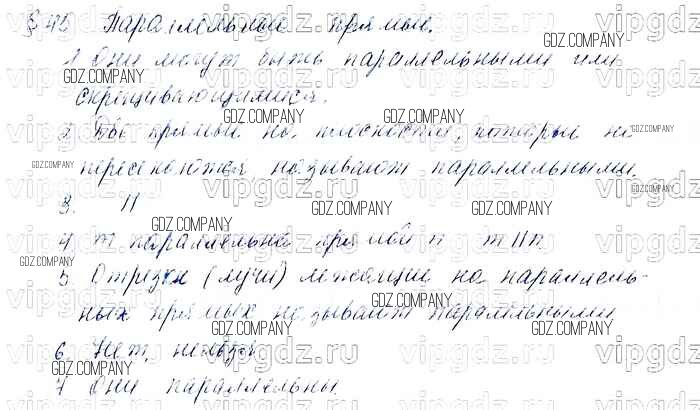 § 45 Параллельные прямые.
1 Они могут быть параллельными или
скрещивающимися.
2 Две прямые на плоскости, которые не
пересекаются, называют параллельными.
3. ||
4 m параллельна прямой n m || n
5 Отрезки (лучи) лежащие на параллель-
ных прямых называют параллельными
6. Нет, нельзя
7 Они параллельны.
GDZ.COMPANY
vipgdz.ru